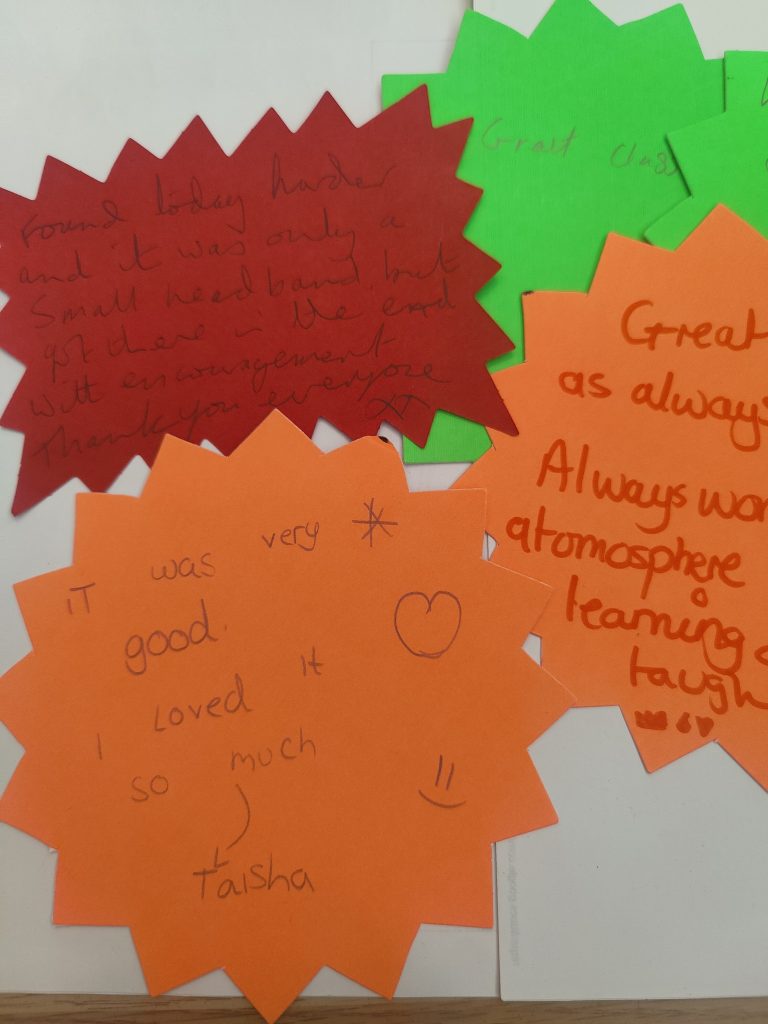 Found today harder
and it was only a
small headband, but
got there in the end
with encouragement
Thank you everyone
Great Class
Great
as always
Always wor
atomosphere
learning
taugh
IT was very
good.
I Loved it
so much
Taisha